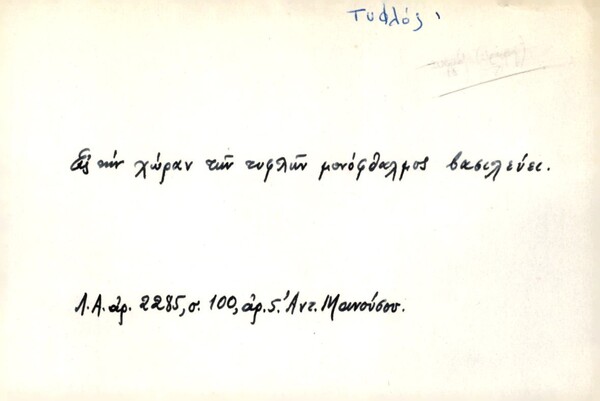 τυφλός.
Εἰς τὴν χώραν τῶν τυφλῶν μονόφθαλμος βασιλεύει.
Λ.Α. ἀρ. 2285, σ. 100, ἀρ. 5. Ἀντ. Μανούσου.